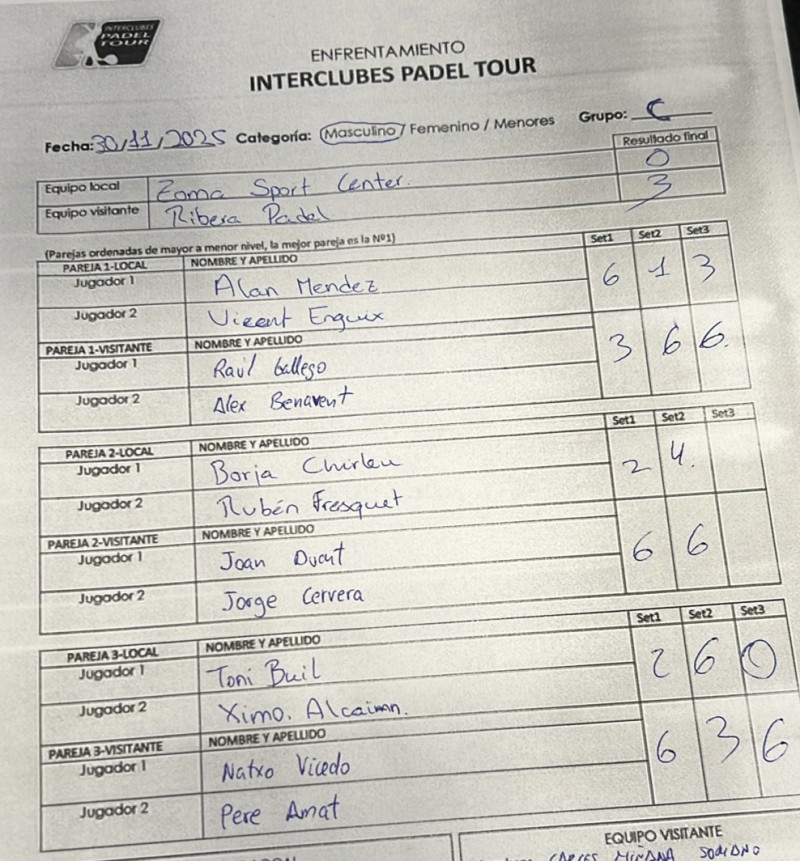 INTERCLUBES
PADEL
TOUR
ENFRENTAMIENTO
INTERCLUBES PADEL TOUR
Fecha: 30/11/2025 Categoría: Masculino / Femenino / Menores Grupo: C
Resultado final
Equipo local Zoma Sport Center. 0
Equipo visitante Ribera Padel 3
(Parejas ordenadas de mayor a menor nivel, la mejor pareja es la Nº1)
PAREJA 1-LOCAL NOMBRE Y APELLIDO Set1 Set2 Set3
Jugador 1 Alan Mendez 6 1 3
Jugador 2 Vicent Enguix
PAREJA 1-VISITANTE NOMBRE Y APELLIDO
Jugador 1 Raúl Gallego 3 6 6
Jugador 2 Alex Benavent
PAREJA 2-LOCAL NOMBRE Y APELLIDO Set1 Set2 Set3
Jugador 1 Borja 2 4
Jugador 2 Rubén Fresquet
PAREJA 2-VISITANTE NOMBRE Y APELLIDO
Jugador 1 Joan 6 6
Jugador 2 Jorge Cervera
PAREJA 3-LOCAL NOMBRE Y APELLIDO Set1 Set2 Set3
Jugador 1 Toni Buil 2 6 0
Jugador 2 Ximo.
PAREJA 3-VISITANTE NOMBRE Y APELLIDO
Jugador 1 Natxo Vicedo 6 3 6
Jugador 2 Pere Amat
EQUIPO VISITANTE
CARLES MIÑANA SORIANO